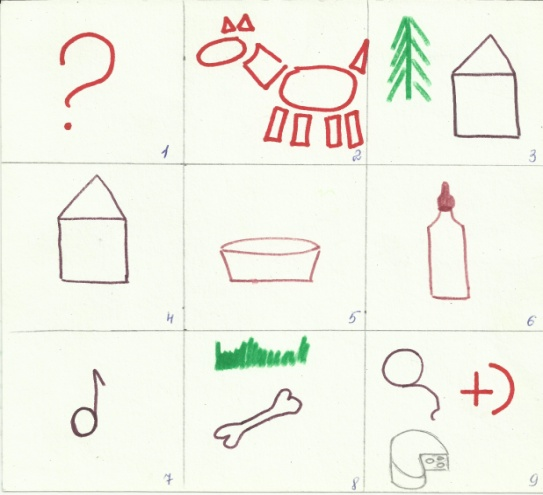 ?
1
2
3
4
5
6
7
8
+)
9